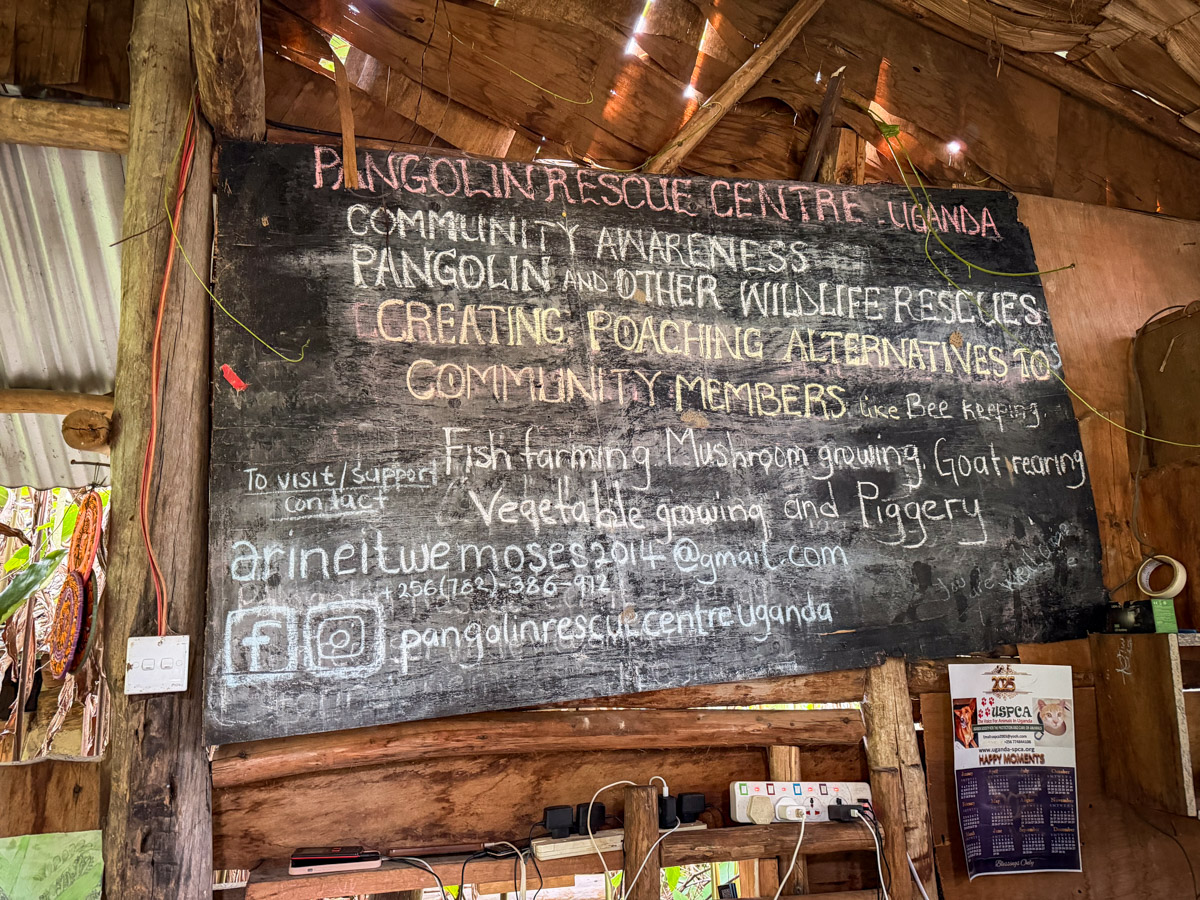 PANGOLIN RESCUE CENTRE - UGANDA
COMMUNITY AWARENESS
PANGOLIN AND OTHER WILDLIFE RESCUES
CREATING POACHING ALTERNATIVES TO
COMMUNITY MEMBERS like Bee keeping,
Fish farming Mushroom growing, Goat rearing
Vegetable growing and Piggery
To visit/support
contact
arineitwemoses2014@gmail.com
+256(782)-386-912
f
pangolinrescuecentreuganda
2025
USPCA
The Voice For Animals in Uganda
www.uganda-spca.org
HAPPY MOMENTS
Blessings Only